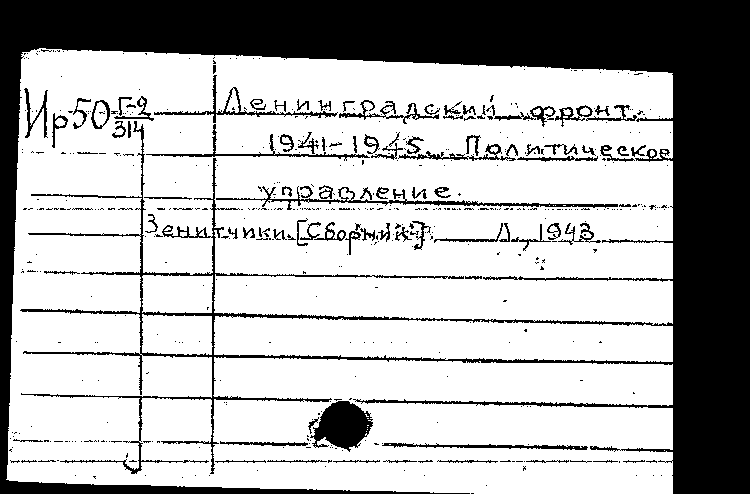 Ир50 Г-9/314
Ленинградский фронт.
1941-1945. Политическое
управление.
Зенитчики. [Сборник]. Л., 1943